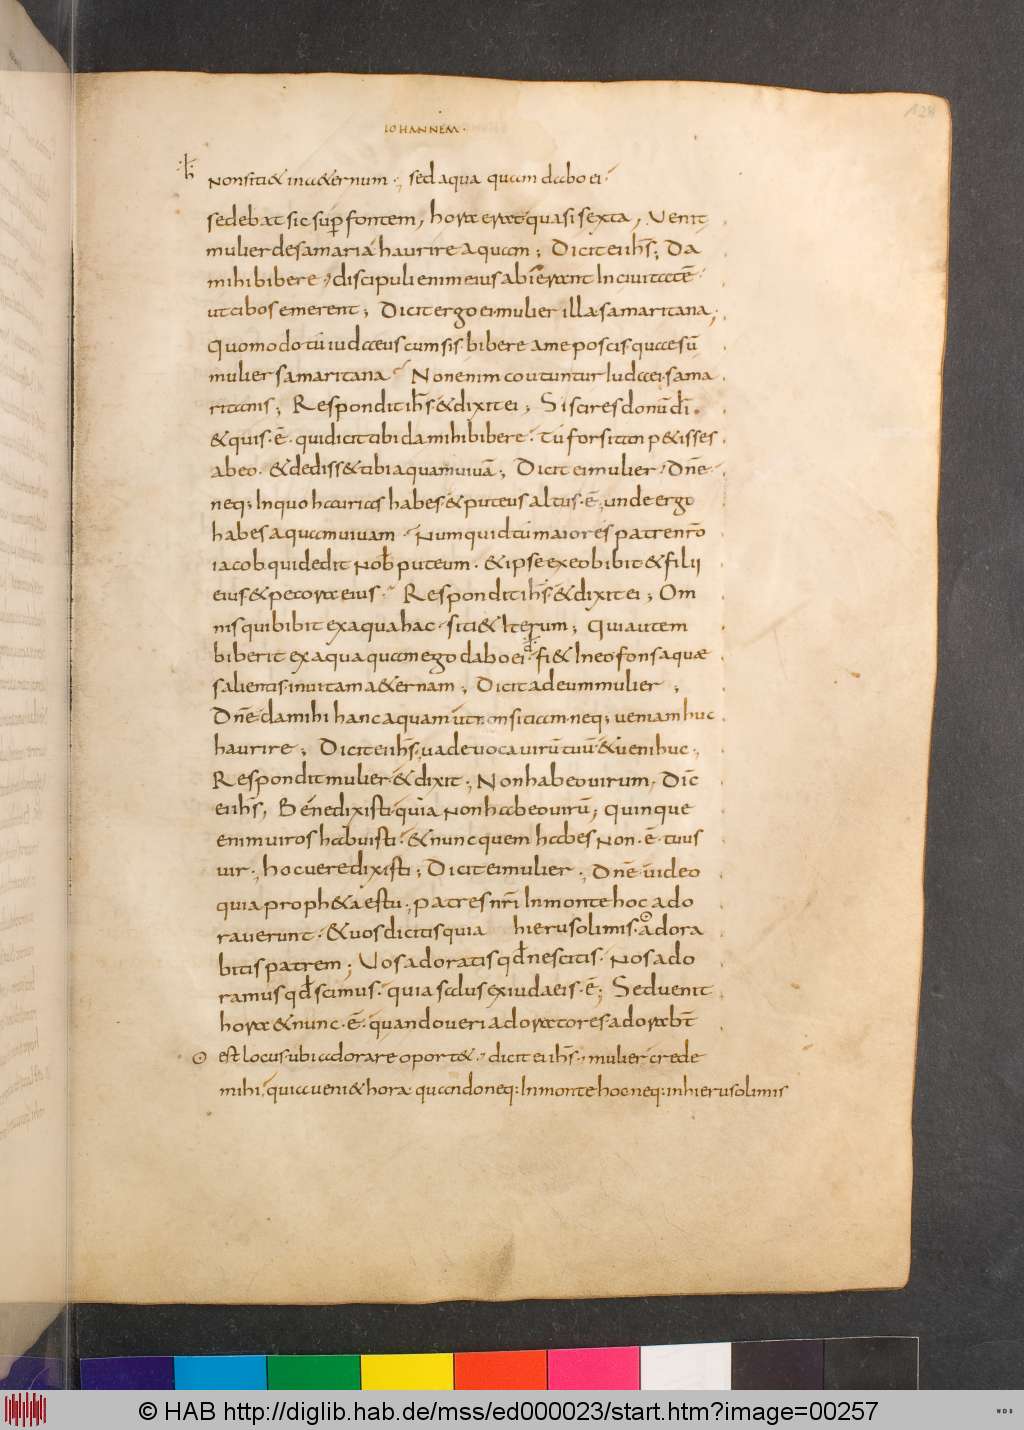 128
IOHANNEM·
·ħ· Non siti& in a&ernum·; sed aqua quam dabo ei·
sedebat sic sup̄ fontem, hora erat quasi sexta, Venit
mulier de samaria haurire aquam; Dicit ei ih̄s; Da
mihi bibere·, discipuli enim eius abierant In civitatē
ut cibos emerent; Dicit ergo ei mulier illa samaritana;
Quomodo tú iudaeus cum sis bibere a me poscis quae sū
mulier samaritana· Non enim coutuntur Iudaei sama
ritanis; Respondit ih̄s & dixit ei; Si scires donū dī·
& quis·ē· qui dicit tibi da mihi bibere· tú forsitan p&isses
ab eo· & dediss& tibi aquam vivā; Dicit ei mulier· Dn̄e
neq; In quo haurias habes & puteus altus·ē· unde ergo
habes aquam vivam· Numquid tú maior es patre nr̄o
iacob qui dedit nob̄ puteum· & ipse ex eo bibit & filii
eius & pecora eius· Respondit ih̄s & dixit ei; Om
nis qui bibit ex aqua hac· siti& Iterum; Qui autem
biberit ex aqua quam ego dabo ei· fi& In eo fons aquæ
salientis in vitam a&ernam; Dicit ad eum mulier;
Dn̄e da mihi hanc aquam út non sitiam· neq; veniam huc
haurire; Dicit ei ih̄s· vade voca virū tuū & veni huc·;
Respondit mulier & dixit; Non habeo virum· Dic̄
ei ih̄s, Béne dixisti· quia Non habeo virū; Quinque
enim viros habuisti· & nunc quem habes Non·ē· tuus
vir·; hoc vere dixisti; Dicit ei mulier; Dn̄e video
quia proph&a es tu·; patres nr̄i In monte hoc ado
raverunt· & vos dicitis quia hierusolimis· adora
bitis patrem; Vos adoratis qd̄ nescitis· Nos ado
ramus qd̄ scimus· quia salus ex iudaeis·ē; Sed venit
hora & nunc·ē· quando veri adoratores adorabt̄
⊙ est locus ubi adorare oport&·, dicit ei ih̄s·, mulier crede
mihi, quia veni& hora quando neq; In monte hoc neq; in hierusolimis
© HAB http://diglib.hab.de/mss/ed000023/start.htm?image=00257
WDB